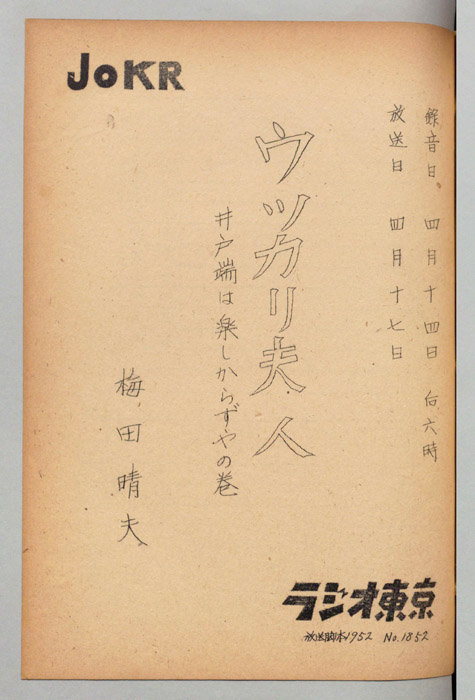 JOKR
錄音日 四月十四日 后六時
放送日 四月十七日
ウッカリ夫人
井戸端は楽しからずやの巻
梅田晴夫
ラジオ東京
放送脚本1952 No.1852